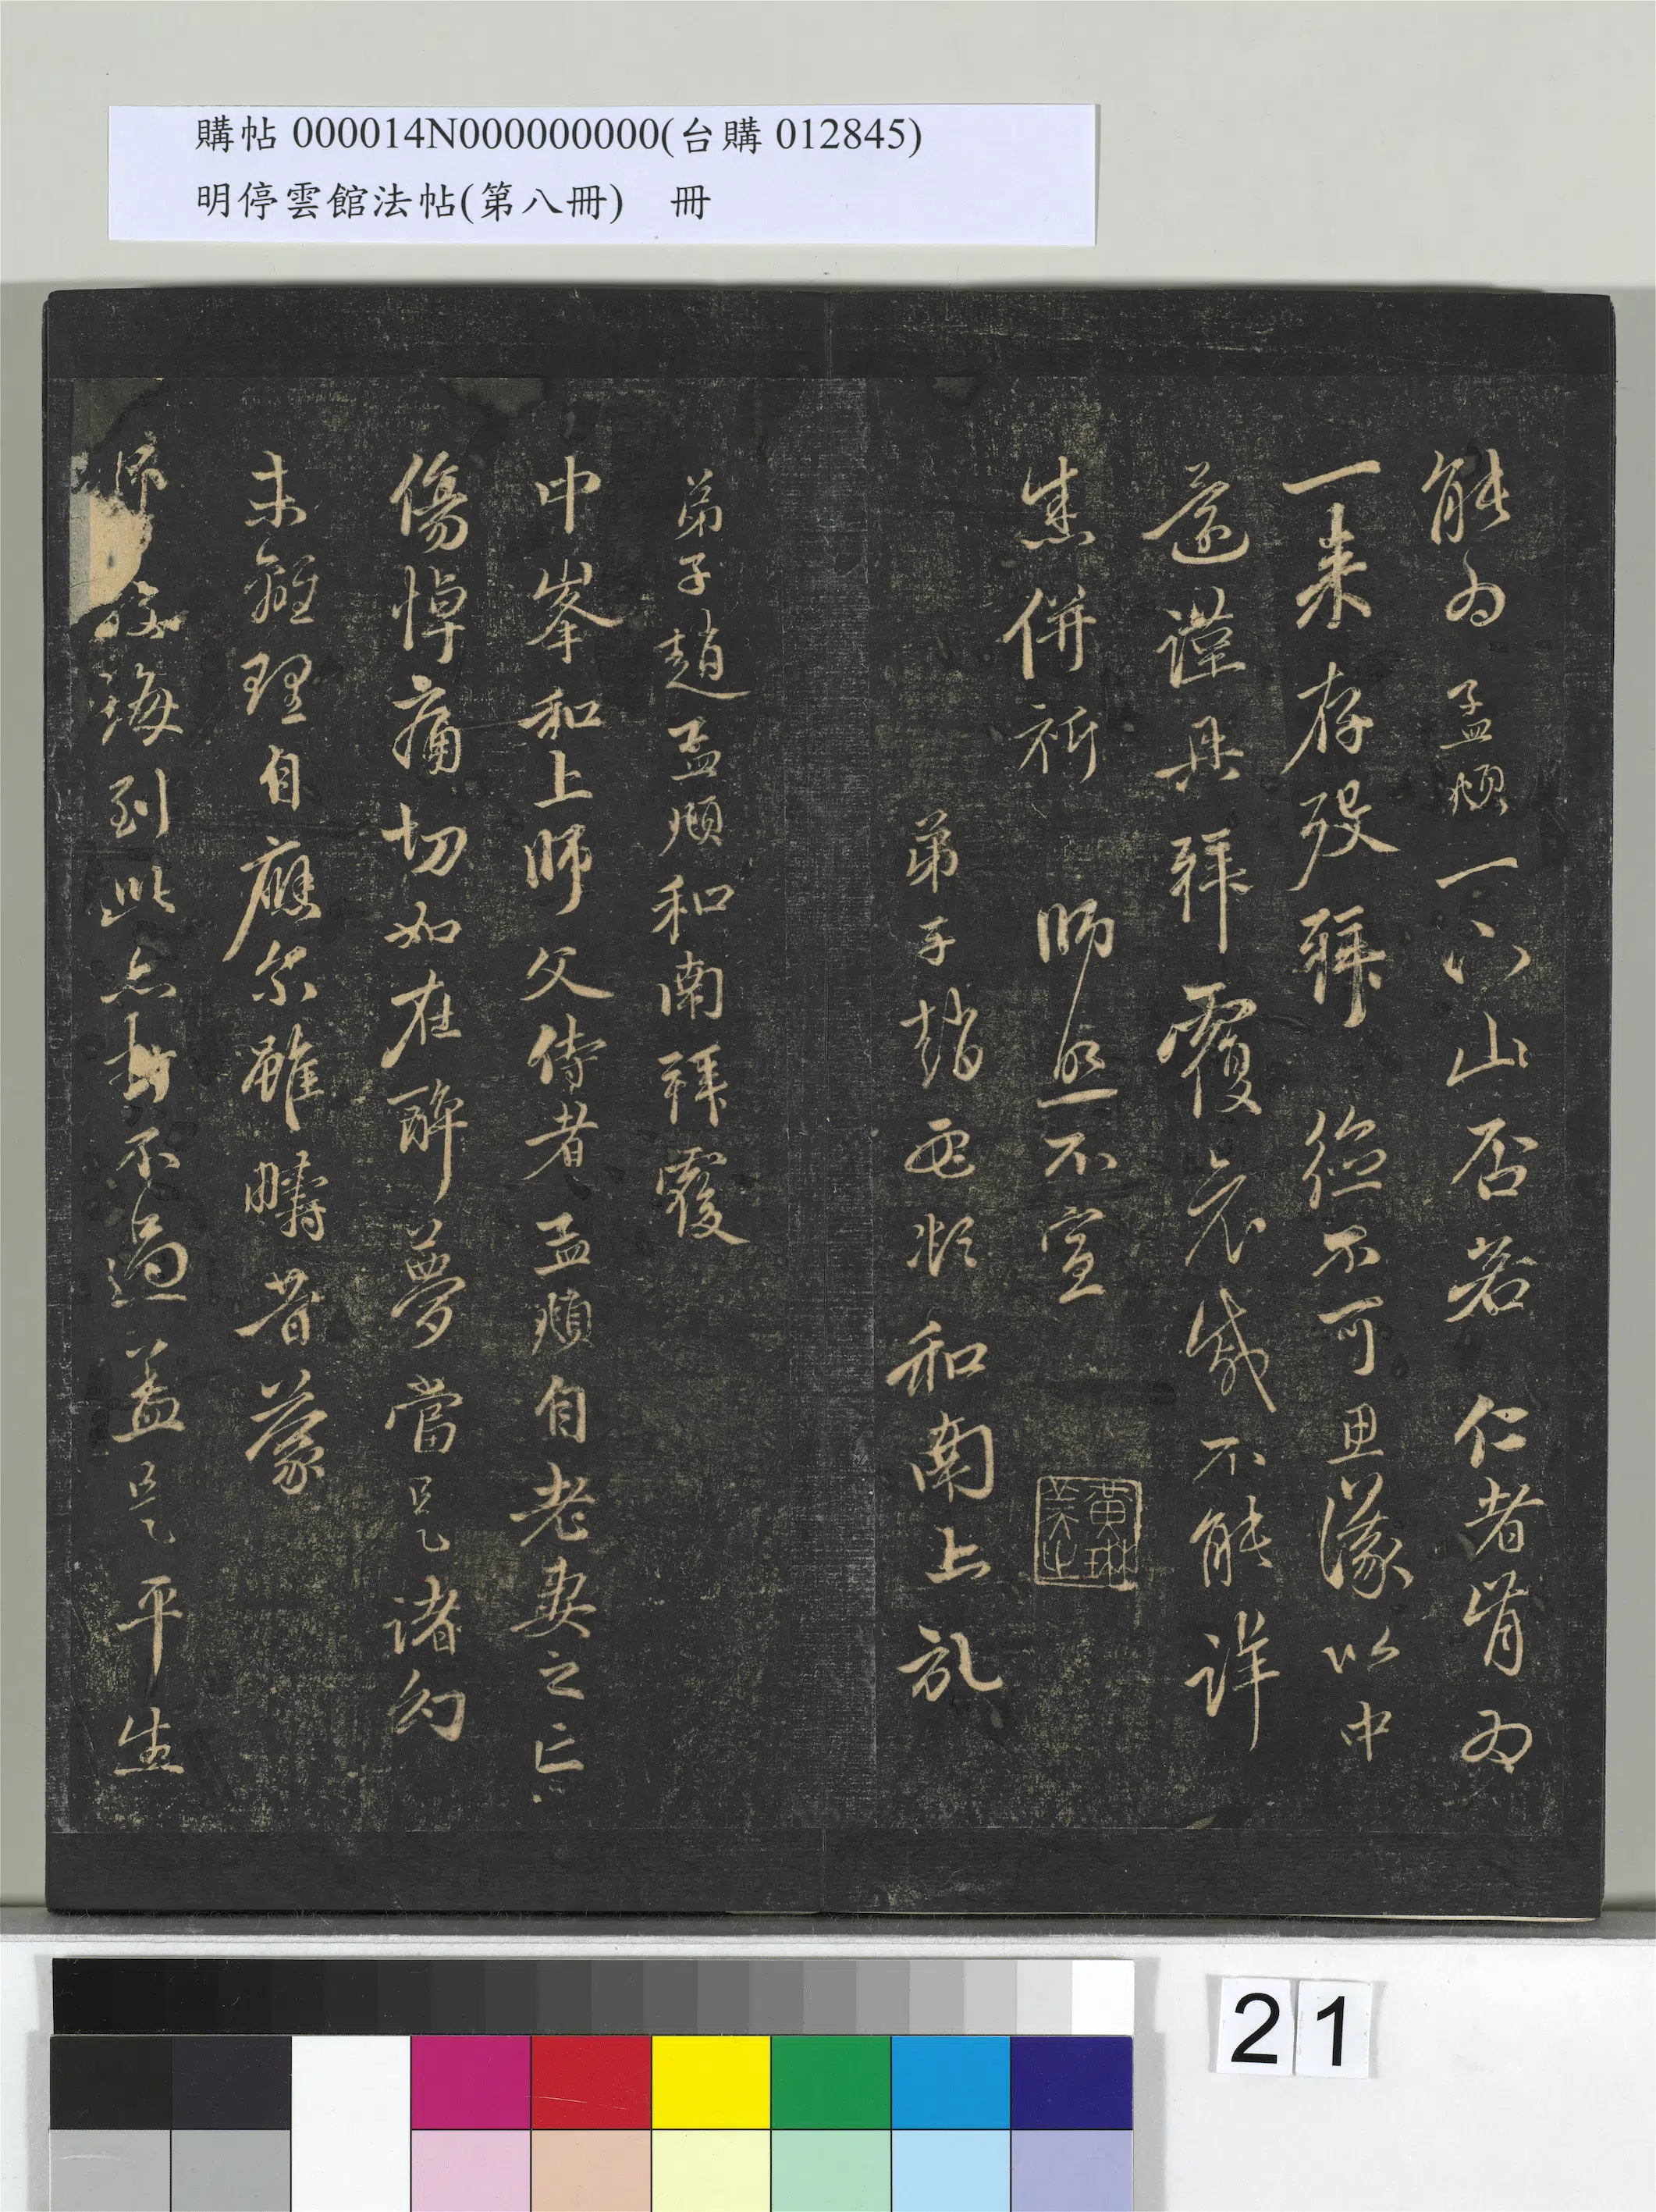 購帖 000014N000000000(台購 012845)
明停雲館法帖(第八冊) 冊
能為孟頫一下山否若仁者肯為
一來存歿拜德不可思議以中
遠謹具拜覆哀感不能詳
悉併祈師照不宣
弟子趙孟頫和南上記
黃琳美之
弟子趙孟頫和南拜覆
中峯和上師父侍者孟頫自老妻之亡
傷悼痛切如在醉夢當是諸幻
未離理自應尔雖疇昔蒙
師誨到此亦打不過蓋是平生
21